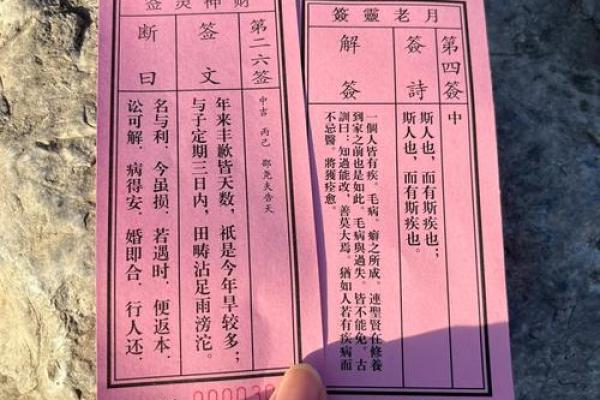 月老靈簽
第四簽
中
簽詩
斯人也，而有斯疾也；
斯人也，而有斯疾也。
解簽
一個人皆有疾。毛病。癖之所成。連聖賢在修養
到家之前也是如此。毛病與過失。皆不能免。古
訓曰：知過能改，善莫大焉。猶如人若有疾病而
不忌醫。將獲痊愈。
财神灵签
第二六签
中吉 丙己 邵尧夫告天
签文
年来丰歉皆天数，祇是今年旱较多；
与子定期三日内，田畴沾足雨滂沱。
断曰
名与利，今虽损，若遇时，便返本，
讼可解，病得安，婚即合，行人还，